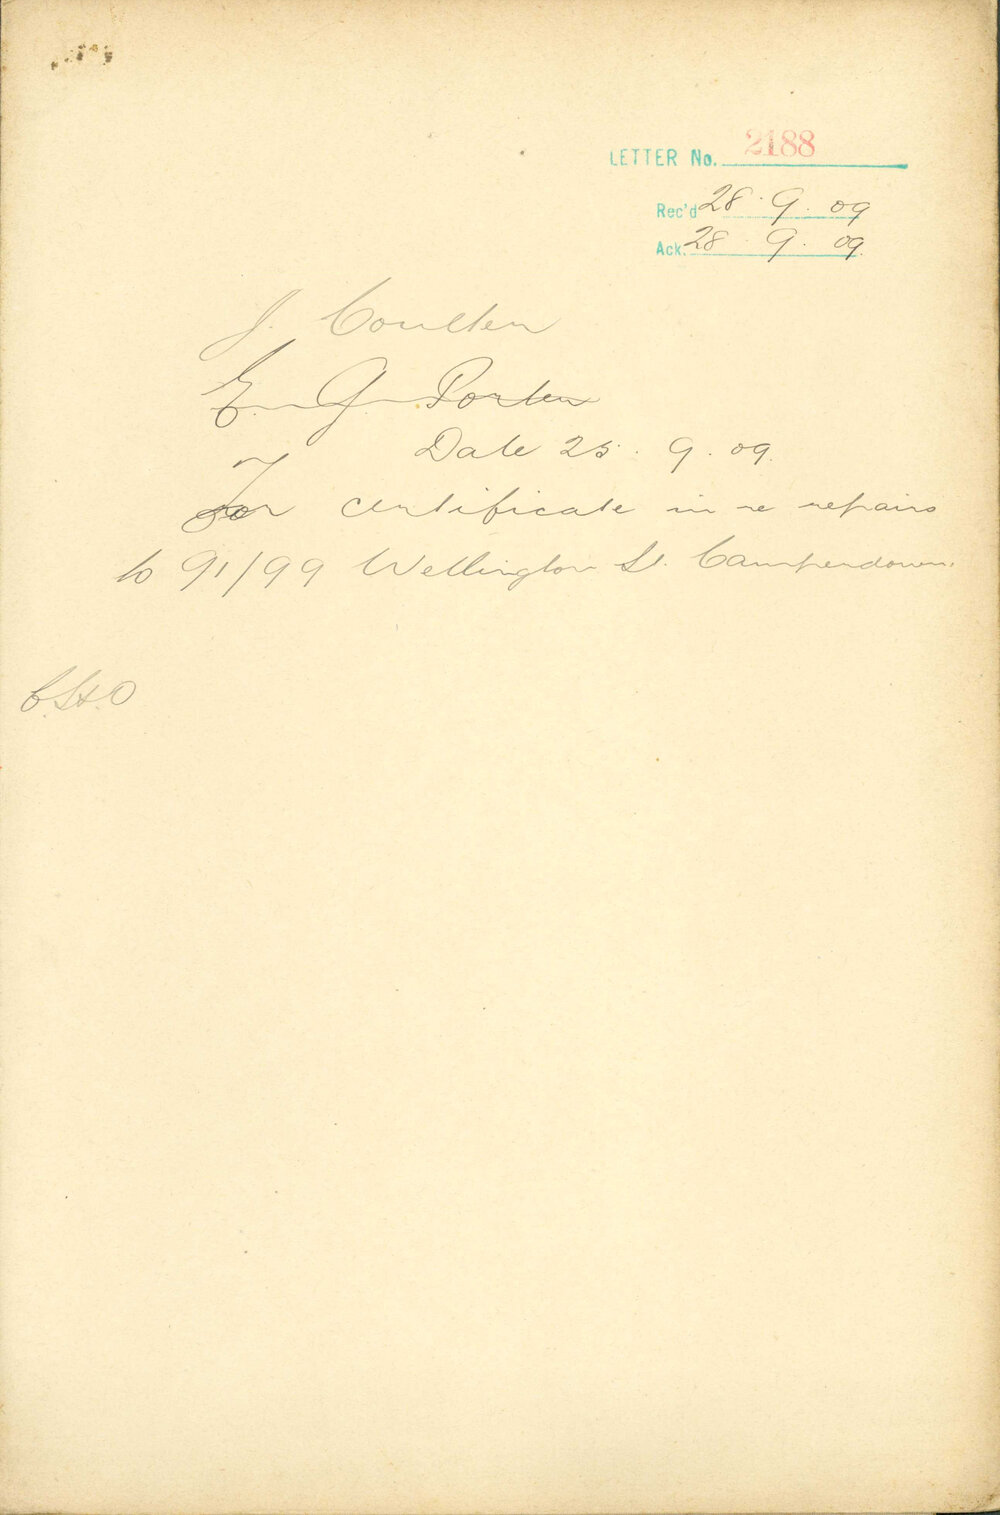 LETTER No. 2188
Rec'd 28.9.09
Ack. 28.9.09
J. Coulter
E. G. Porter
Date 25.9.09.
For certificate in re repairs
to 91/99 Wellington St. Camperdown.
C.S.O